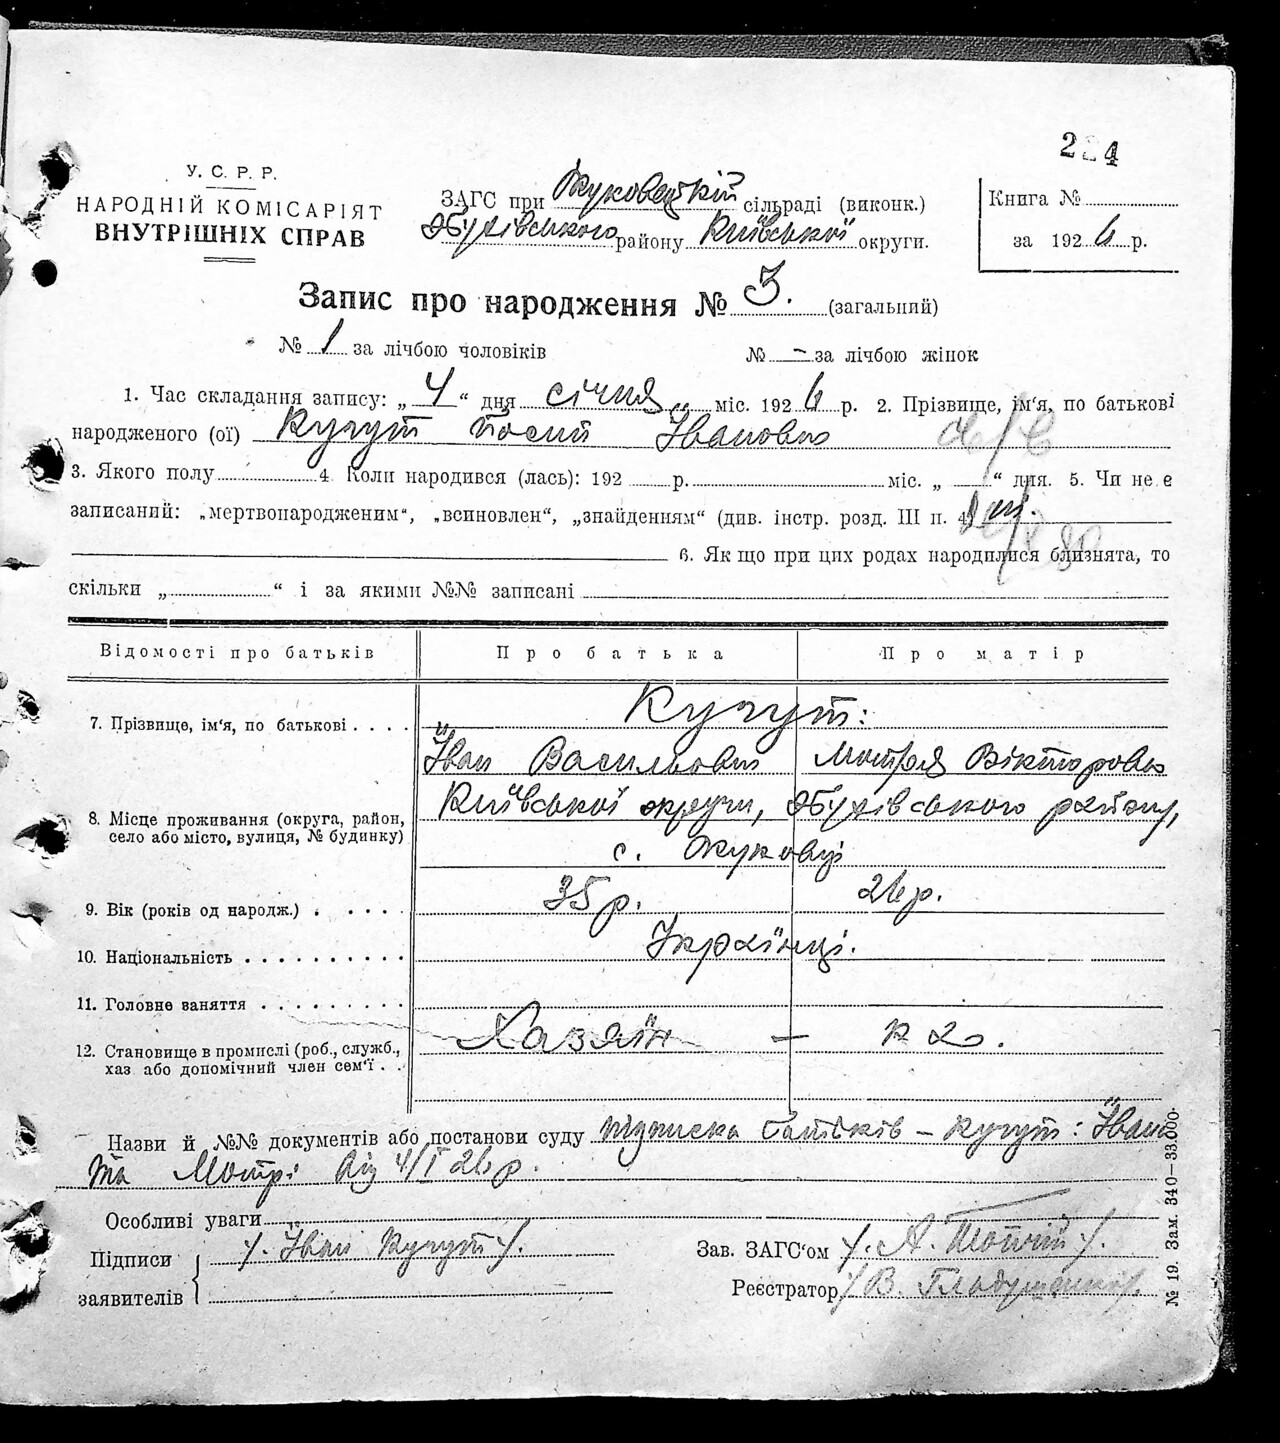 224
У. С. Р. Р.
НАРОДНІЙ КОМІСАРІЯТ
ВНУТРІШНІХ СПРАВ
ЗАГС при Жуковецкій сільраді (виконк.)
Обухівського району Київської округи.
Книга №
за 1926 р.
Запис про народження № 3. (загальний)
№ 1 за лічбою чоловіків № – за лічбою жінок
1. Час складання запису: „ 4 “ дня січня міс. 1926 р. 2. Прізвище, ім'я, по батькові
народженого (ої) Кучут Йосип Іванович
3. Якого полу 4. Коли народився (лась): 192 р. міс. „ “ дня. 5. Чи не є
записаний: „мертвонародженим“, „всиновлен“, „знайденням“ (див. інстр. розд. III п. 4
6. Як що при цих родах народилися близнята, то
скільки „ “ і за якими №№ записані
Відомості про батьків Про батька Про матір
7. Прізвище, ім'я, по батькові Кучут:
Іван Васильович Мотря Вікторовн
8. Місце проживання (округа, район, село або місто, вулиця, № будинку) Київської округи, Обухівського району,
с. Жуковці
9. Вік (років од народж.) 35 р. 26 р.
10. Національність Українці.
11. Головне заняття
12. Становище в промислі (роб., служб., хаз або допомічний член сем'ї Хазяїн –
Назви й №№ документів або постанови суду підписка батьків – Кучут: Івана
та Мотрі від 4/I 26 р.
Особливі уваги
Підписи заявителів /. Іван Кучут /.
Зав. ЗАГС'ом /. А.
Реєстратор / В.
№ 19. Зам. 340—33.000